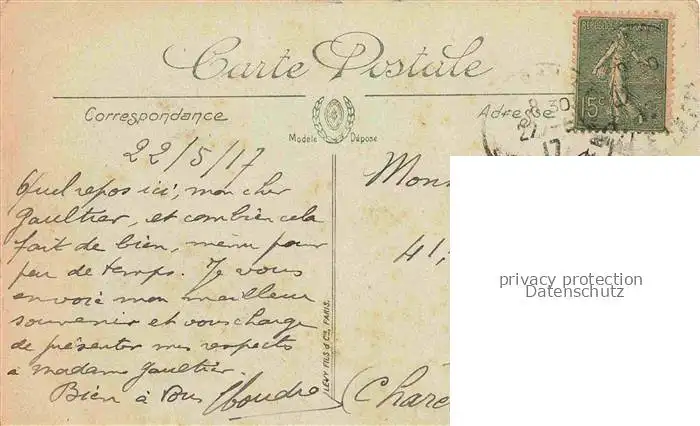 Carte Postale
Correspondance
Adresse
Modèle Déposé
REPUBLIQUE FRANÇAISE
15c
8 30
22/5/17
Quel repos ici, mon cher
Gaultier, et combien cela
fait de bien, même pour
peu de temps. Je vous
envoie mon meilleur
souvenir et vous charge
de présenter mes respects
à Madame Gaultier.
Bien à vous
LEVY FILS & Cie, PARIS.
Mons
41,
(Chare
privacy protection
Datenschutz